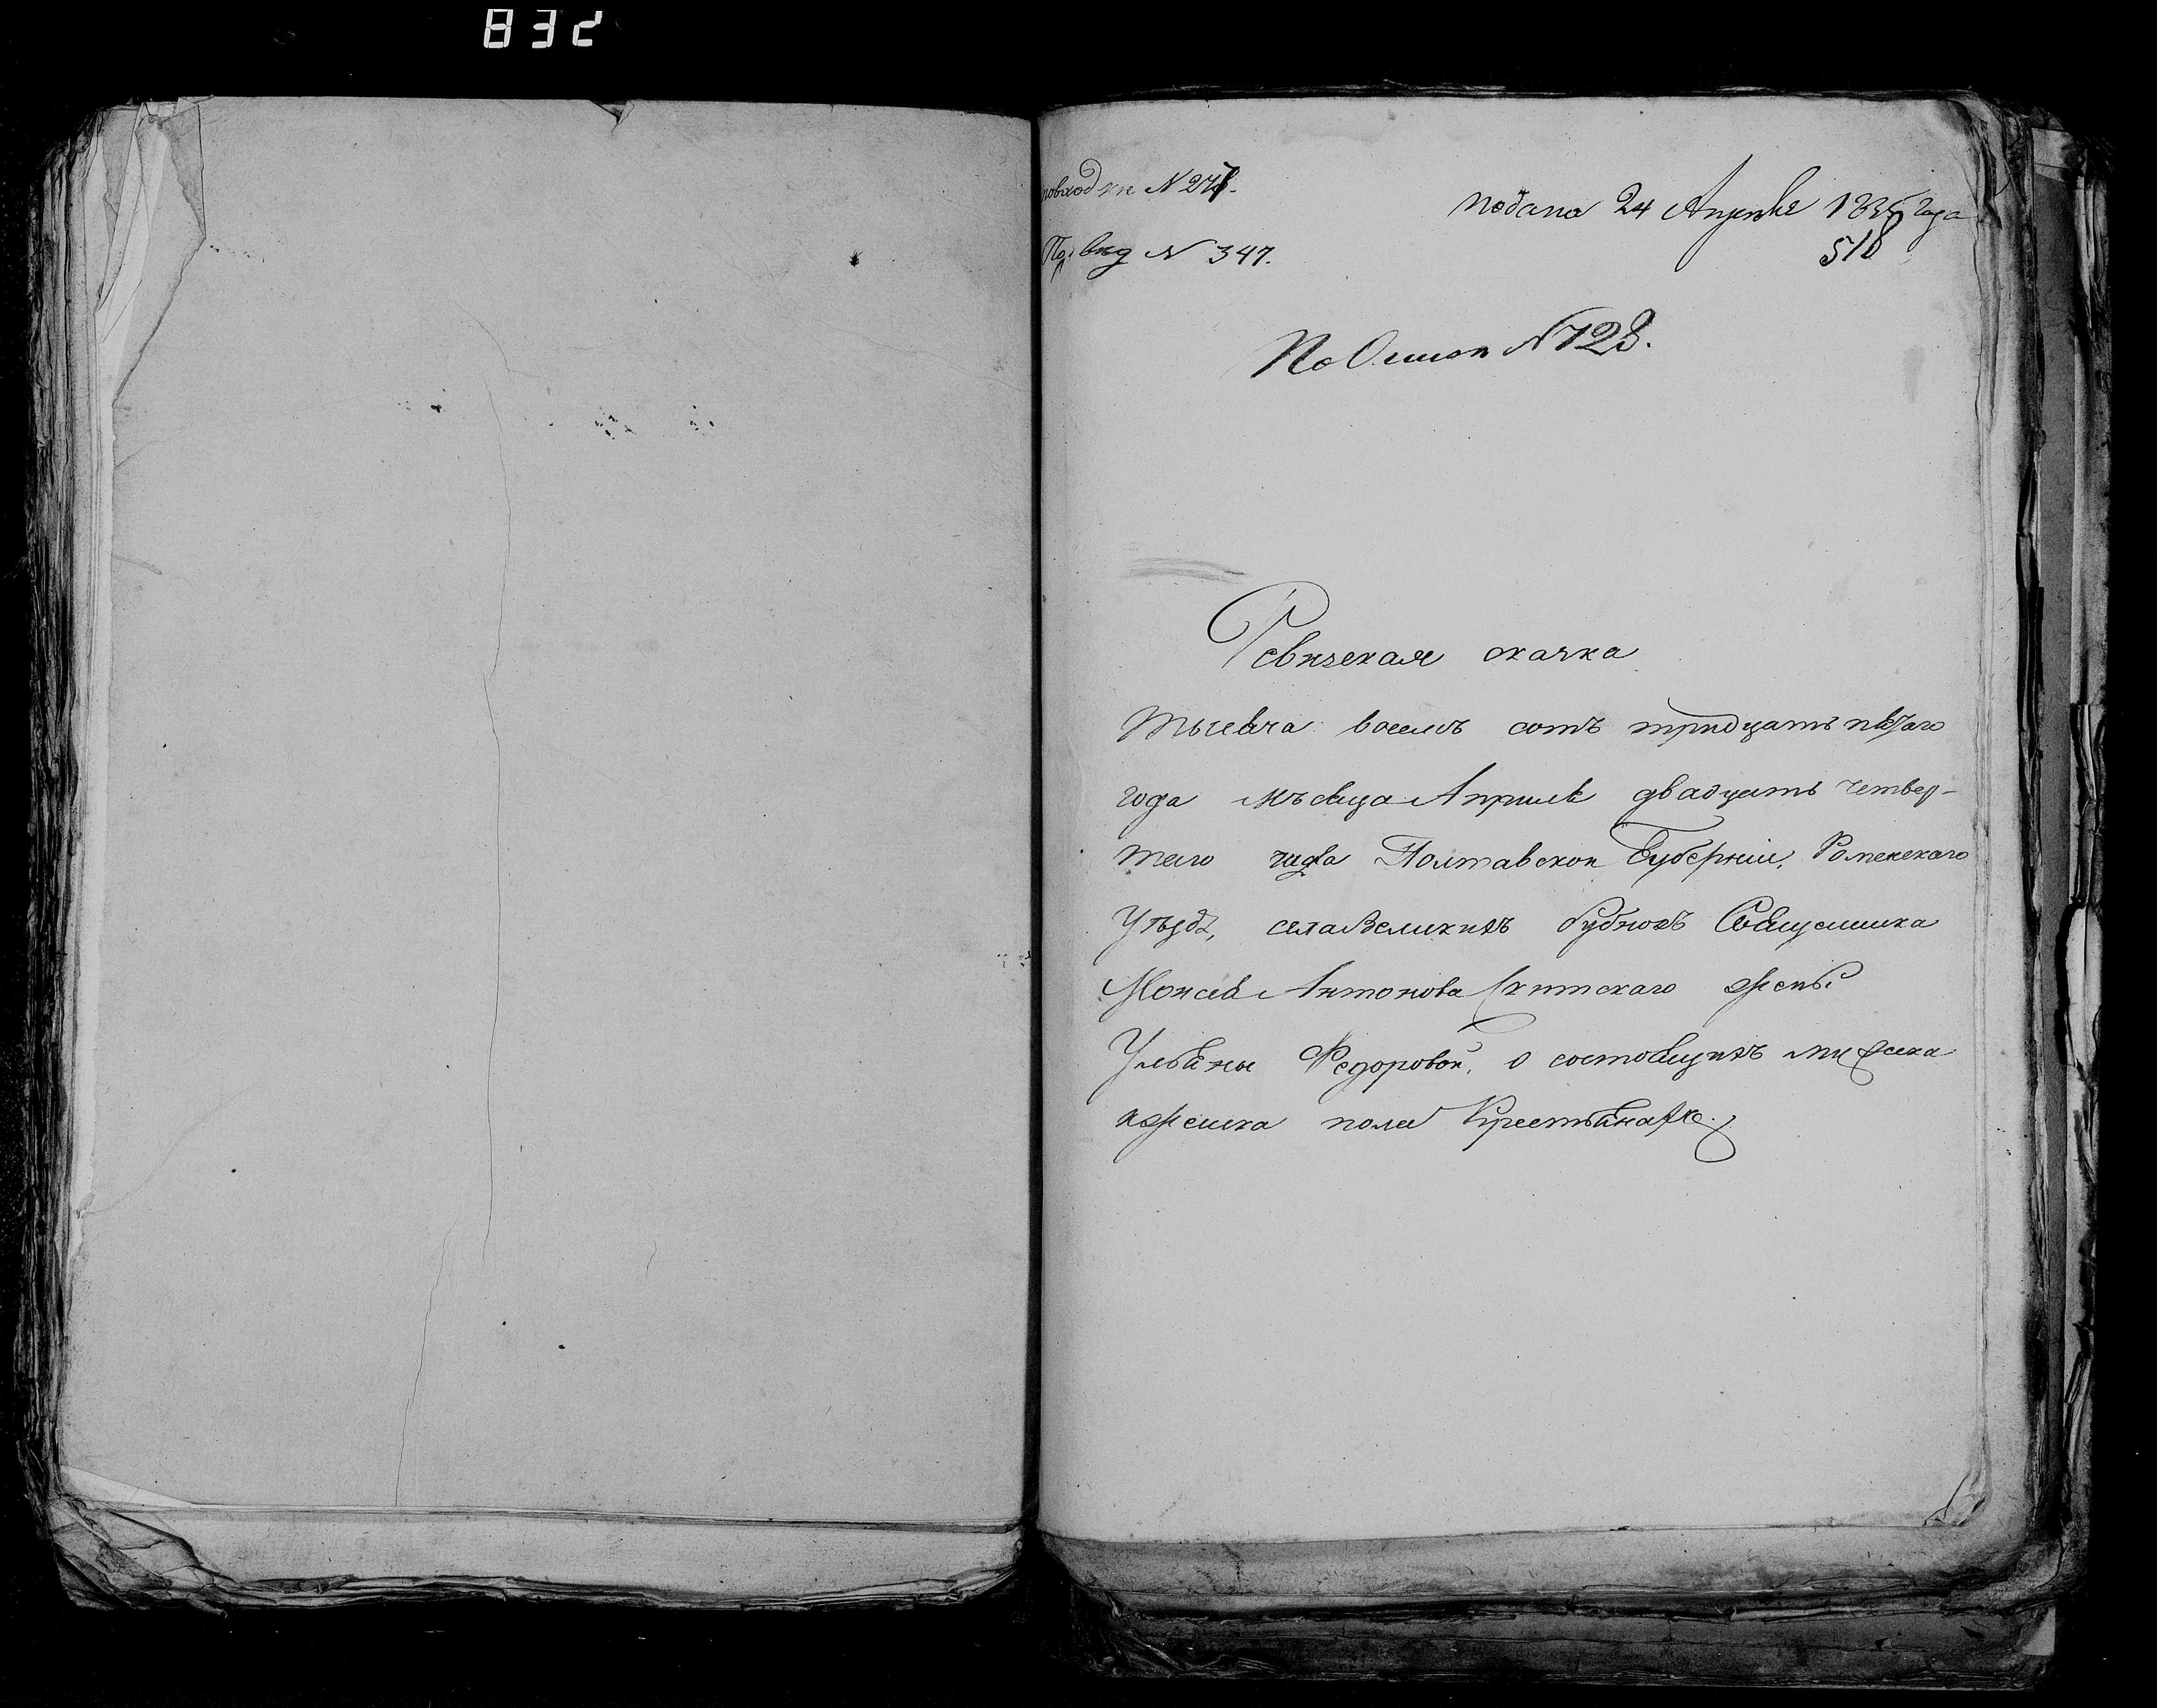 832
по входящ N 278.
подана 24 Апреля 1835 года
По вход N 347.
518
По Описи N 123.
Ревизская сказка
Тысяча восемь сотъ тридцать пятаго
года мѣсяца Апреля двадцать четвер-
таго числа Полтавской Губерніи, Роменскаго
Уѣзда, села Великихъ Бубновъ Священника
Моисея Антонова жены
Ульяны Федоровой, о состоящихъ мужеска
и женска пола Крестьянахъ.